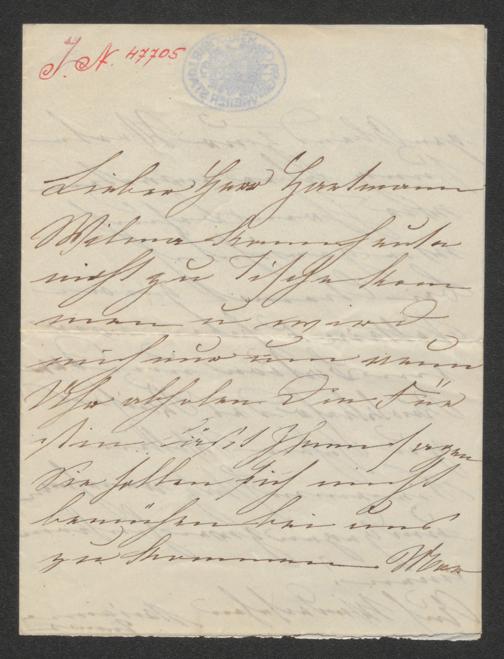 I. N. 47705
Lieber Herr Hartmann
Wilma kann heute
nicht zu Tische kom
men u wird
mich nur um neun
Uhr abholen Die Für
stin läßt Ihnen sagen
Sie sollen sich nicht
bemühen bei uns
zu kommen